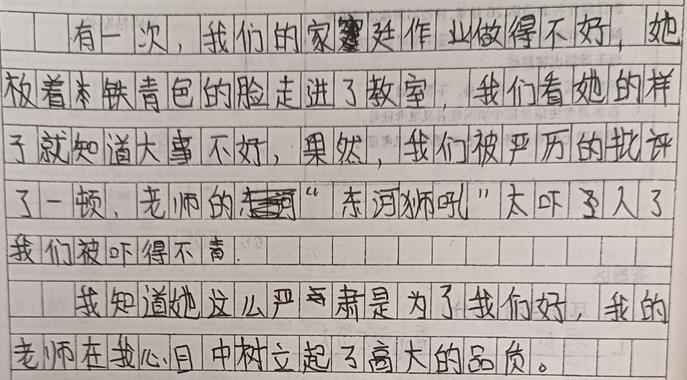 有一次，我们的家廷作业做得不好，她
板着铁青色的脸走进了教室，我们看她的样
子就知道大事不好，果然，我们被严厉的批评
了一顿，老师的“东河狮吼”太吓人了
我们被吓得不青.
我知道她这么严肃是为了我们好，我的
老师在我心目中树立起了高大的品质。